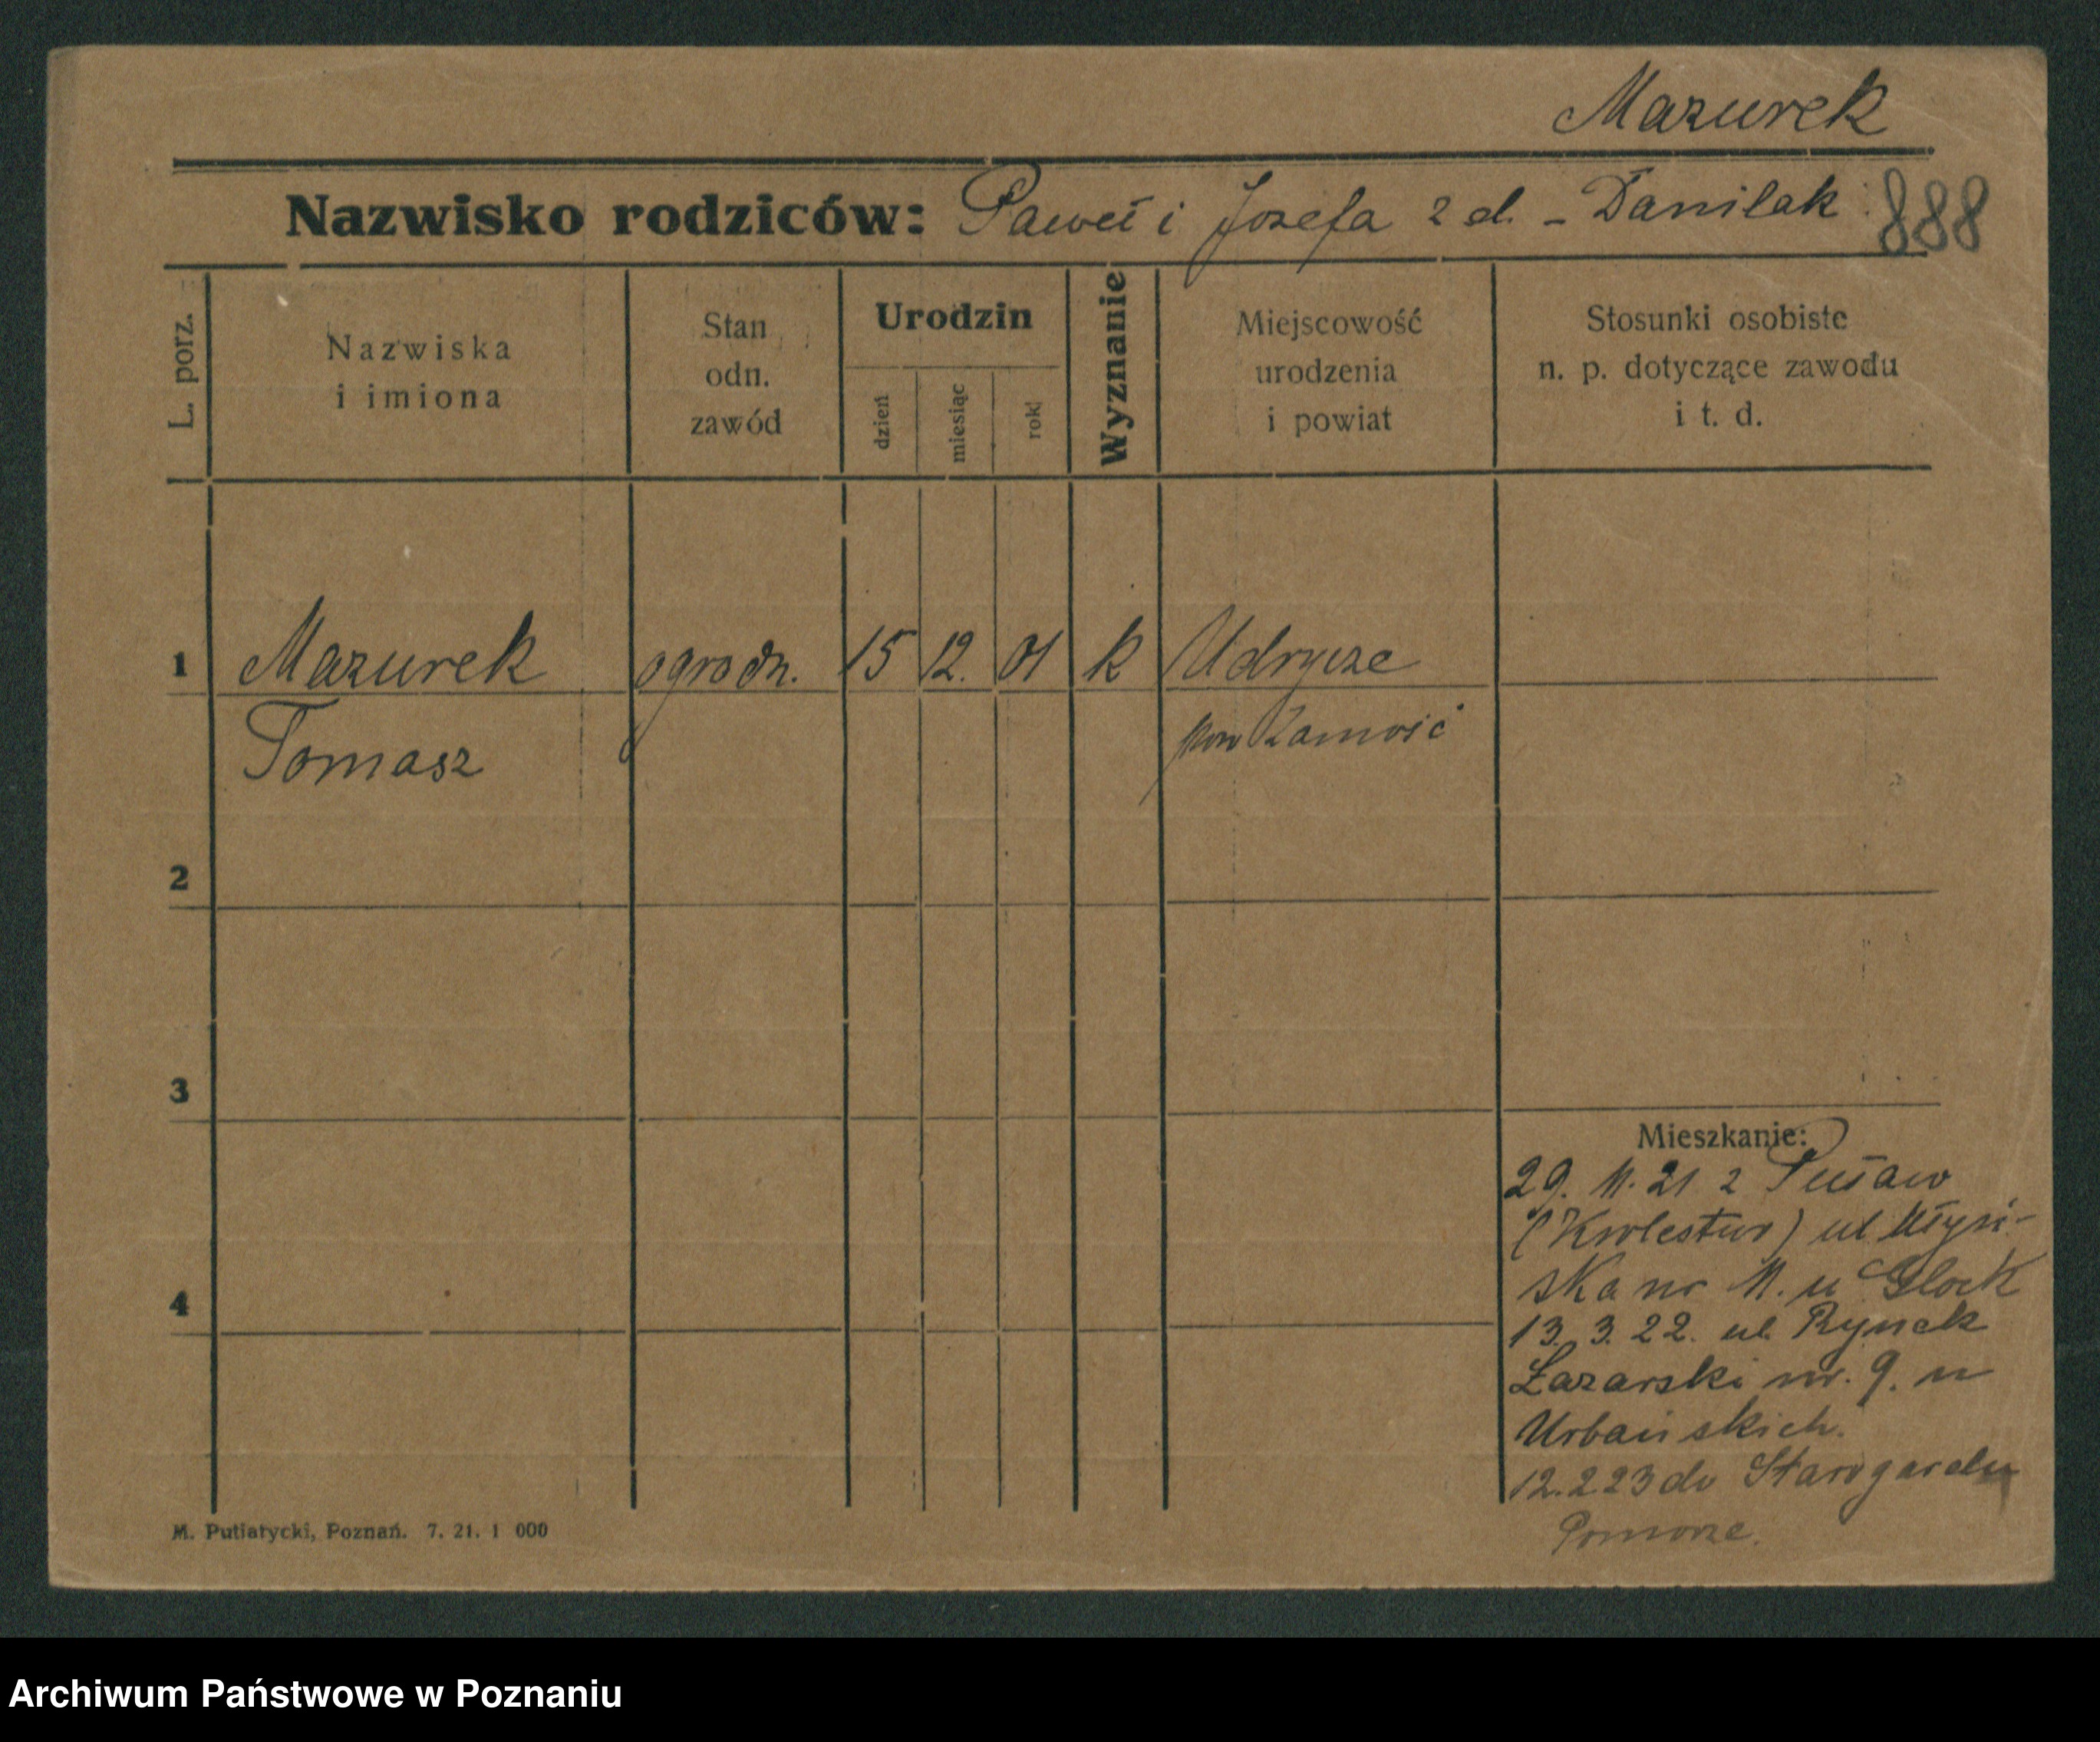 Mazurek
Nazwisko rodziców: Paweł i Jozefa z d. - Danilak 888
L. porz.
Nazwiska
i imiona
Stan
odn.
zawód
Urodzin
dzień
miesiąc
rok
Wyznanie
Miejscowość
urodzenia
i powiat
Stosunki osobiste
n. p. dotyczące zawodu
i t. d.
1 Mazurek ogrodn. 15 12. 01 k Udrycze
Tomasz pow Zamość
2
3
4
Mieszkanie:
29. 11. 21 z Puław
(Krolestwo) ul Młyń-
ska nr 11. u Glock
13. 3. 22. ul. Rynek
Łazarski nr. 9. u
Urbańskich.
12.2.23 do Starogardu
Pomorze.
M. Putiatycki, Poznań. 7. 21. 1 000
Archiwum Państwowe w Poznaniu